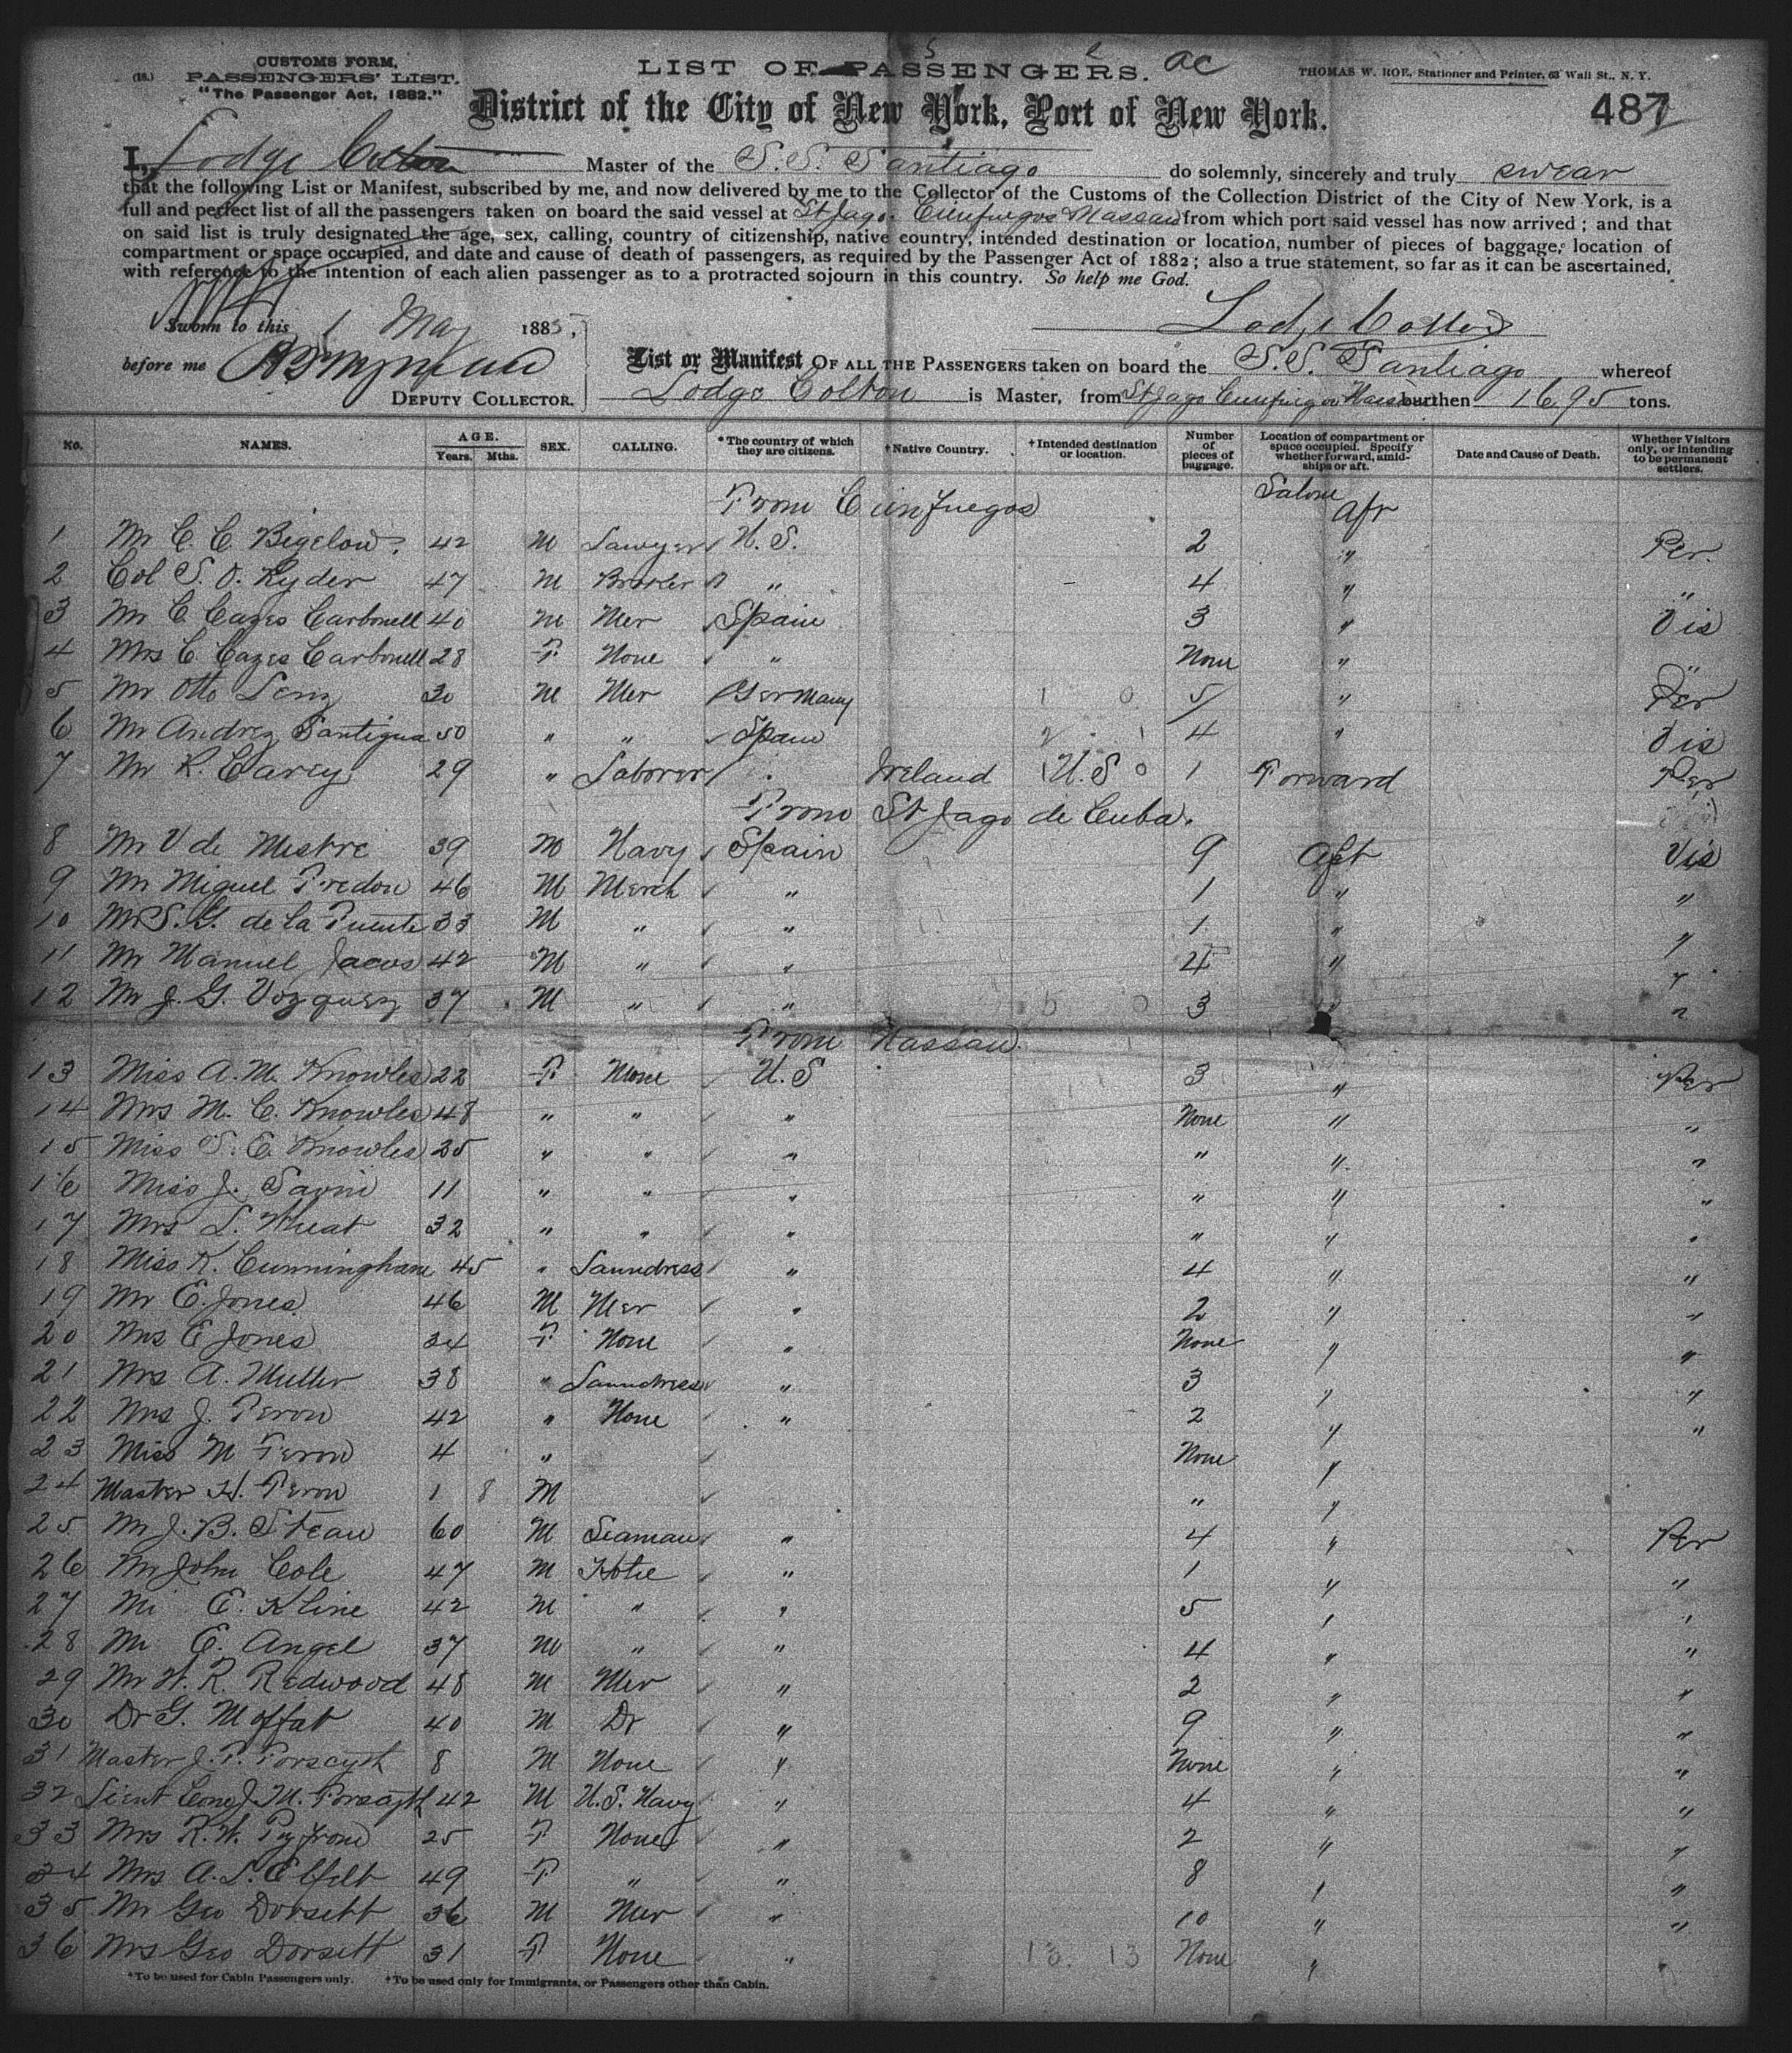 CUSTOMS FORM,
(18.) PASSENGERS' LIST.
"The Passenger Act, 1882."
LIST OF PASSENGERS. ac
THOMAS W. ROE, Stationer and Printer, 63 Wall St., N. Y.
District of the City of New York, Port of New York.
487
I, Lodge Colton Master of the S.S. Santiago do solemnly, sincerely and truly swear
that the following List or Manifest, subscribed by me, and now delivered by me to the Collector of the Customs of the Collection District of the City of New York, is a
full and perfect list of all the passengers taken on board the said vessel at St Jago. Cienfuegos Nassau from which port said vessel has now arrived ; and that
on said list is truly designated the age, sex, calling, country of citizenship, native country, intended destination or location, number of pieces of baggage, location of
compartment or space occupied, and date and cause of death of passengers, as required by the Passenger Act of 1882 ; also a true statement, so far as it can be ascertained,
with reference to the intention of each alien passenger as to a protracted sojourn in this country. So help me God.
Sworn to this 1 May 1885,
Lodge Colton
before me
DEPUTY COLLECTOR.
List or Manifest OF ALL THE PASSENGERS taken on board the S.S. Santiago whereof
Lodge Colton is Master, from St Jago Cienfuegos Nassau burthen 1695 tons.
No. NAMES. AGE. Years. Mths. SEX. CALLING. *The country of which they are citizens. †Native Country. †Intended destination or location. Number of pieces of baggage. Location of compartment or space occupied. Specify whether forward, amidships or aft. Date and Cause of Death. Whether Visitors only, or intending to be permanent settlers.
From Cienfuegos Salone Aft
1 Mr C. C. Bigelow. 42 M Lawyer U.S. 2 " Per.
2 Col S. O. Ryder 47 M Broker " 4 " "
3 Mr C. Cazes Carbonell 40 M Mer Spain 3 " Vis
4 Mrs C. Cazes Carbonell 28 F None " None " "
5 Mr Otto Lenz 30 M Mer Germany 5 " Per
6 Mr Andrez Santigua 50 " " Spain 4 " Vis
7 Mr R. Carey 29 " Laborer Ireland U.S 1 Forward Per
From St Jago de Cuba.
8 Mr V de Mestre 39 M Navy Spain 9 Aft Vis
9 Mr Miguel Predon 46 M Merch " 1 " "
10 Mr S. G. de la Puente 33 M " " 1 " "
11 Mr Manuel Jacas 42 M " " 4 " "
12 Mr J. G. Vozquez 37 M " " 3 " "
From Nassau.
13 Miss A. M. Knowles 22 F None U.S 3 " Per
14 Mrs M. C. Knowles 48 " " " None " "
15 Miss S. E. Knowles 25 " " " " " "
16 Miss J. 11 " " " " " "
17 Mrs L. Wheat 32 " " " " " "
18 Miss K. Cunningham 45 " Laundress " 4 " "
19 Mr E. Jones 46 M Mer " 2 " "
20 Mrs E Jones 34 F None " None " "
21 Mrs A. Muller 38 " Laundress " 3 " "
22 Mrs J. Peron 42 " None " 2 " "
23 Miss M Peron 4 " None "
24 Master H. Peron 1 8 M " "
25 Mr J. B. Stean 60 M Seaman " 4 " Per
26 Mr John Cole 47 M " 1 " "
27 Mr E. Kline 42 M " " 5 " "
28 Mr E. Angel 37 M " " 4 " "
29 Mr W. R. Redwood 48 M Mer " 2 " "
30 Dr G. Moffat 40 M Dr " 9 " "
31 Master J. P. Forsayth 8 M None " None " "
32 Lieut Com J. M. Forsayth 42 M U.S. Navy " 4 " "
33 Mrs R. W. 25 F None " 2 " "
34 Mrs A. L. Elfelt 49 F " " 8 " "
35 Mr Geo Dorsett 36 M Mer " 10 " "
36 Mrs Geo Dorsett 31 F None " 13. 13 None " "
*To be used for Cabin Passengers only. †To be used only for Immigrants, or Passengers other than Cabin.